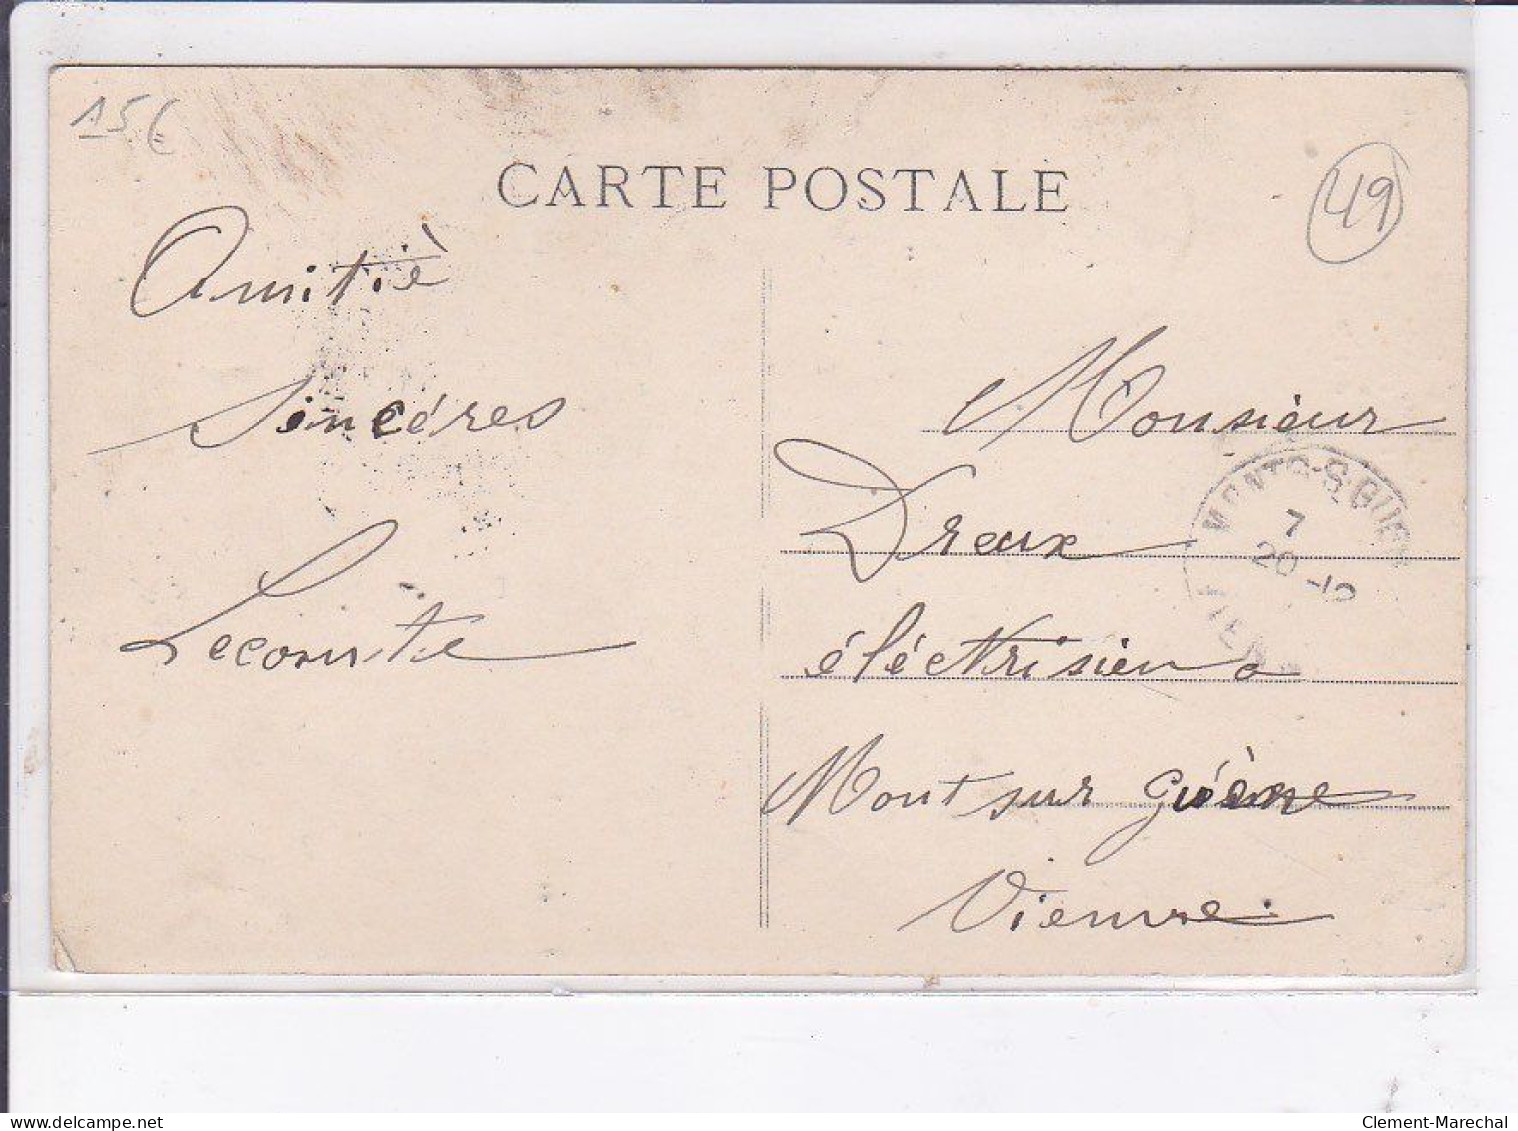 15€
CARTE POSTALE
49
Amitiè
Sincéres
Lecomte
Monsieur
Dreux
éléctrisien
Mont sur guèsne
Vienne
7
20 -12
delcampe.net
Clement-Marechal